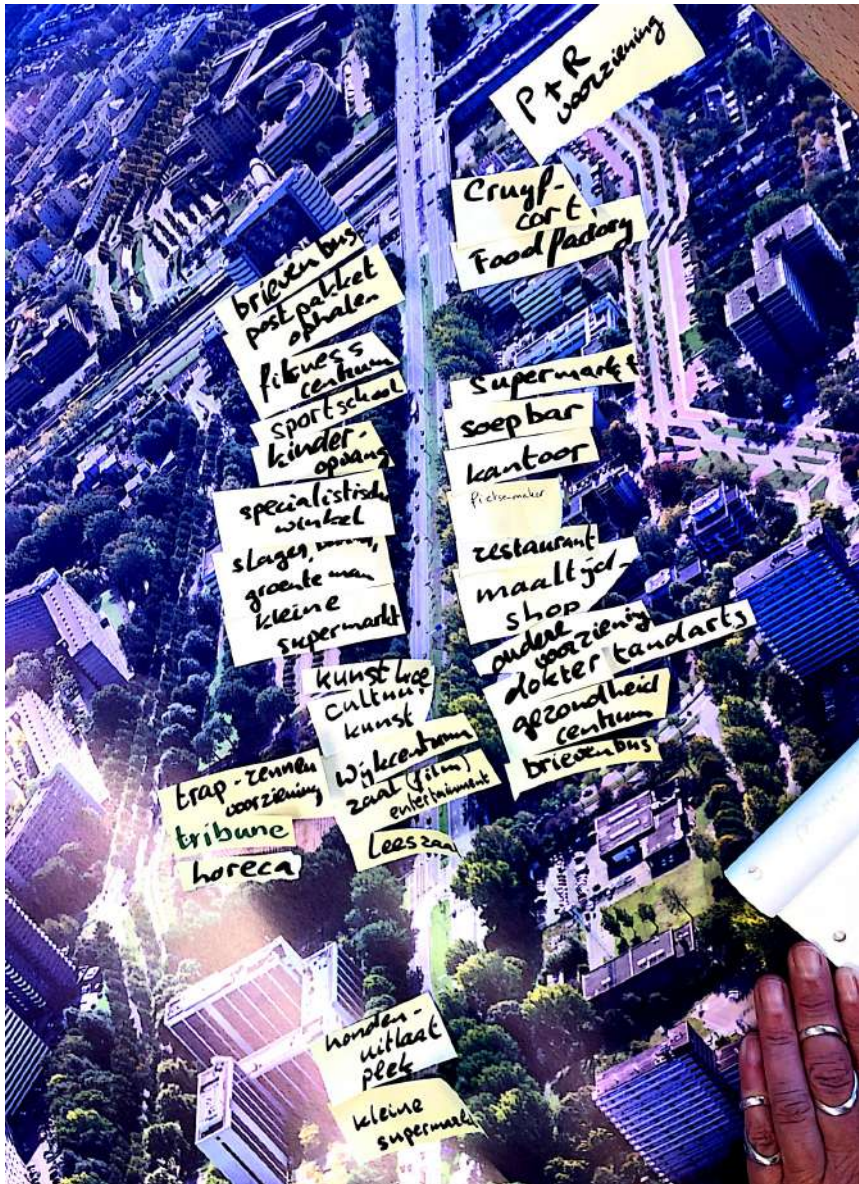 P + R
voorziening
Cruyf-
cort
Food factory
brievenbus
post pakket
ophalen
fitness
centrum
sportschool
kinder-
opvang
specialistische
winkel
slager,
groenteman
kleine
supermarkt
supermarkt
soepbar
kantoor
fietsenmaker
restaurant
maaltijd-
shop
oudere
voorziening
dokter tandarts
gezondheid
centrum
brievenbus
kunst
cultuur
kunst
wijkcentrum
zaal (film)
entertainment
leeszaal
trap-rennen
voorziening
tribune
horeca
honden-
uitlaat
plek
kleine
supermarkt